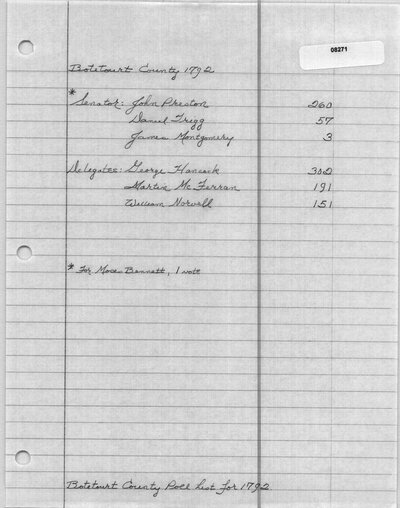 08271
Botetourt County 1792
* Senator: John Preston 260
Daniel Trigg 57
James Montgomery 3
Delegates: George Hancock 302
Martin McFerran 191
William Norvell 151
* For Moses Bennett, 1 vote
Botetourt County Poll List for 1792